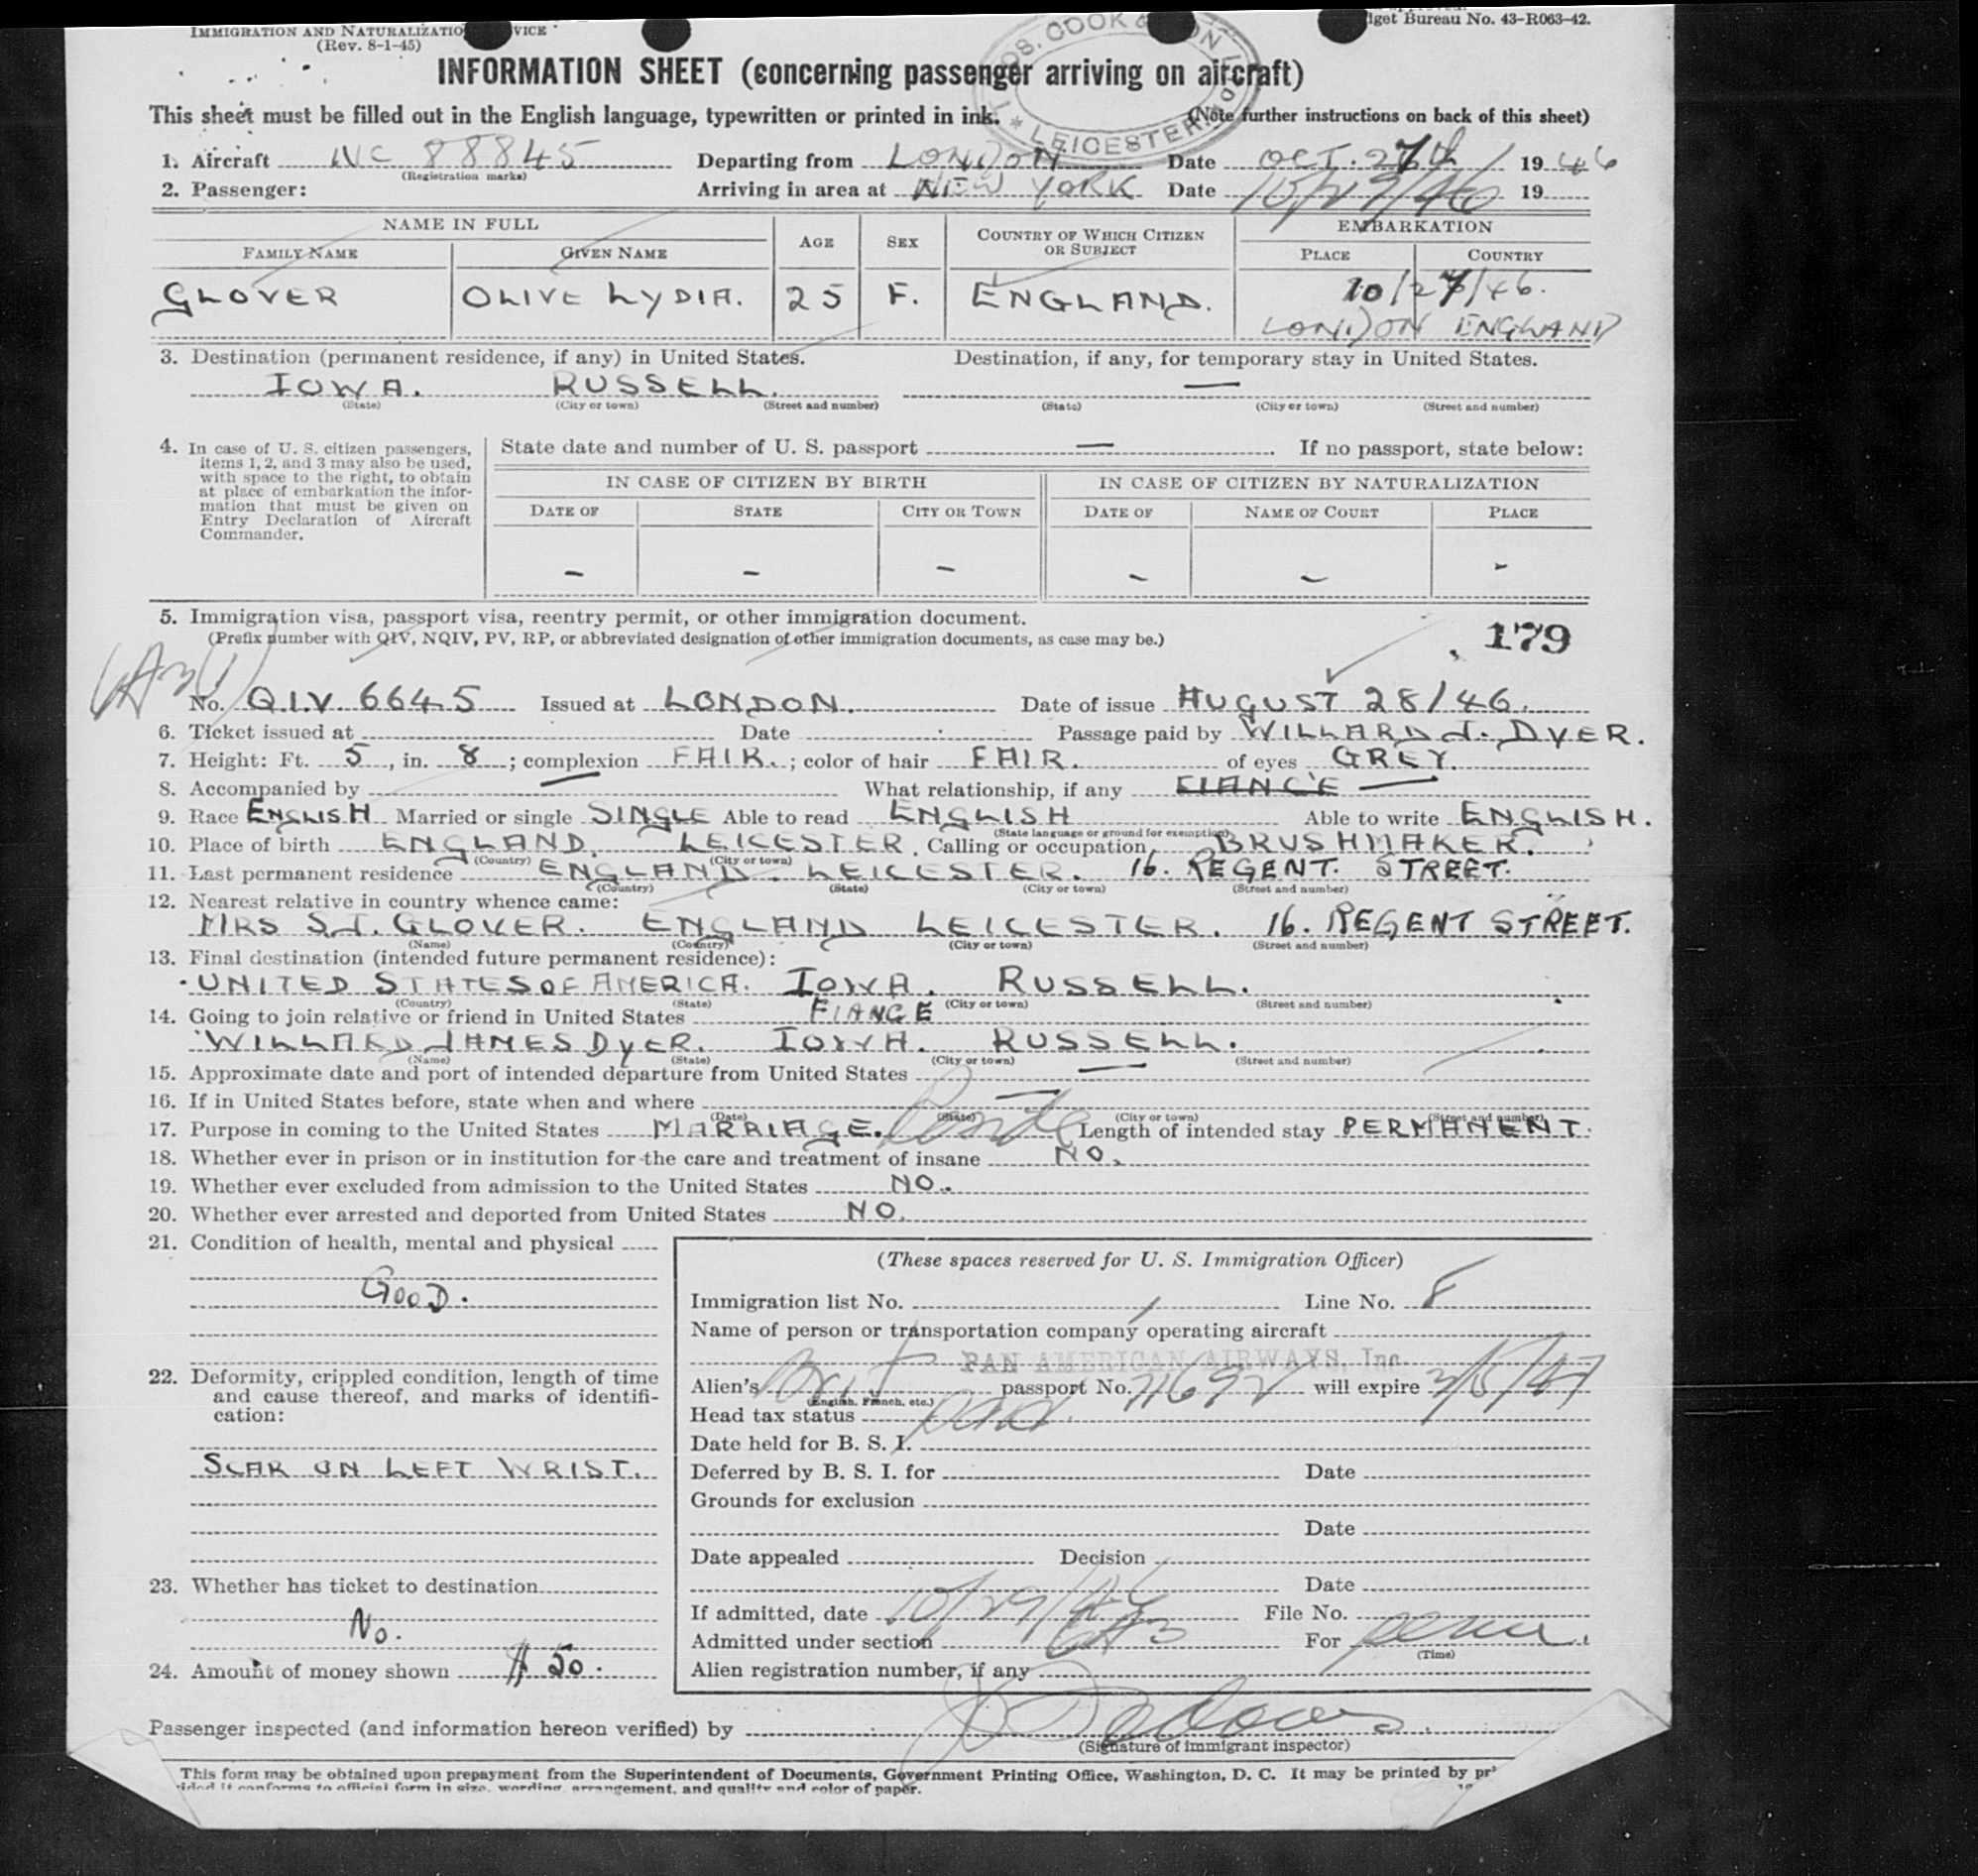 IMMIGRATION AND NATURALIZATIO VICE
(Rev. 8-1-45)
get Bureau No. 43-R063-42.
INFORMATION SHEET (concerning passenger arriving on aircraft)
COOK & SON
LEICESTER
This sheet must be filled out in the English language, typewritten or printed in ink. (Note further instructions on back of this sheet)
1. Aircraft NC 88845 Departing from LONDON Date OCT. 27th 1946
(Registration marks)
2. Passenger: Arriving in area at NEW YORK Date 19
NAME IN FULL AGE SEX COUNTRY OF WHICH CITIZEN OR SUBJECT EMBARKATION
FAMILY NAME GIVEN NAME PLACE COUNTRY
GLOVER OLIVE LYDIA. 25 F. ENGLAND. 10/27/46.
LONDON ENGLAND
3. Destination (permanent residence, if any) in United States. Destination, if any, for temporary stay in United States.
IOWA. RUSSELL. —
(State) (City or town) (Street and number) (State) (City or town) (Street and number)
4. In case of U. S. citizen passengers, items 1, 2, and 3 may also be used, with space to the right, to obtain at place of embarkation the information that must be given on Entry Declaration of Aircraft Commander.
State date and number of U. S. passport — If no passport, state below:
IN CASE OF CITIZEN BY BIRTH IN CASE OF CITIZEN BY NATURALIZATION
DATE OF STATE CITY OR TOWN DATE OF NAME OF COURT PLACE
- - - - - -
5. Immigration visa, passport visa, reentry permit, or other immigration document.
(Prefix number with QIV, NQIV, PV, RP, or abbreviated designation of other immigration documents, as case may be.)
179
No. Q.I.V. 6645 Issued at LONDON. Date of issue AUGUST 28/46.
6. Ticket issued at Date Passage paid by WILLARD J. DYER.
7. Height: Ft. 5, in. 8; complexion FAIR.; color of hair FAIR. of eyes GREY.
8. Accompanied by — What relationship, if any FIANCÉ —
9. Race ENGLISH Married or single SINGLE Able to read ENGLISH Able to write ENGLISH.
(State language or ground for exemption)
10. Place of birth ENGLAND. LEICESTER. Calling or occupation BRUSHMAKER.
(Country) (City or town)
11. Last permanent residence ENGLAND. LEICESTER. 16. REGENT. STREET.
(Country) (State) (City or town) (Street and number)
12. Nearest relative in country whence came:
MRS S.J. GLOVER. ENGLAND LEICESTER. 16. REGENT STREET.
(Name) (Country) (City or town) (Street and number)
13. Final destination (intended future permanent residence):
UNITED STATES OF AMERICA. IOWA. RUSSELL.
(Country) (State) (City or town) (Street and number)
14. Going to join relative or friend in United States FIANCE
WILLARD JAMES DYER. IOWA. RUSSELL.
(Name) (State) (City or town) (Street and number)
15. Approximate date and port of intended departure from United States —
16. If in United States before, state when and where —
(Date) (State) (City or town) (Street and number)
17. Purpose in coming to the United States MARRIAGE. Length of intended stay PERMANENT.
18. Whether ever in prison or in institution for the care and treatment of insane NO.
19. Whether ever excluded from admission to the United States NO.
20. Whether ever arrested and deported from United States NO.
21. Condition of health, mental and physical
GOOD.
22. Deformity, crippled condition, length of time and cause thereof, and marks of identification:
SCAR ON LEFT WRIST.
23. Whether has ticket to destination
No.
24. Amount of money shown $ 50.
(These spaces reserved for U. S. Immigration Officer)
Immigration list No. Line No. 8
Name of person or transportation company operating aircraft
PAN AMERICAN AIRWAYS, Inc.
Alien's Brit passport No. 71692 will expire 3/5/47
(English, French, etc.)
Head tax status paid.
Date held for B. S. I.
Deferred by B. S. I. for Date
Grounds for exclusion
Date
Date appealed Decision
Date
If admitted, date 10/29/46 File No.
Admitted under section 6A3 For perm.
(Time)
Alien registration number, if any
Passenger inspected (and information hereon verified) by
(Signature of immigrant inspector)
This form may be obtained upon prepayment from the Superintendent of Documents, Government Printing Office, Washington, D. C. It may be printed by pri
ided it conforms to official form in size, wording, arrangement, and quality and color of paper.